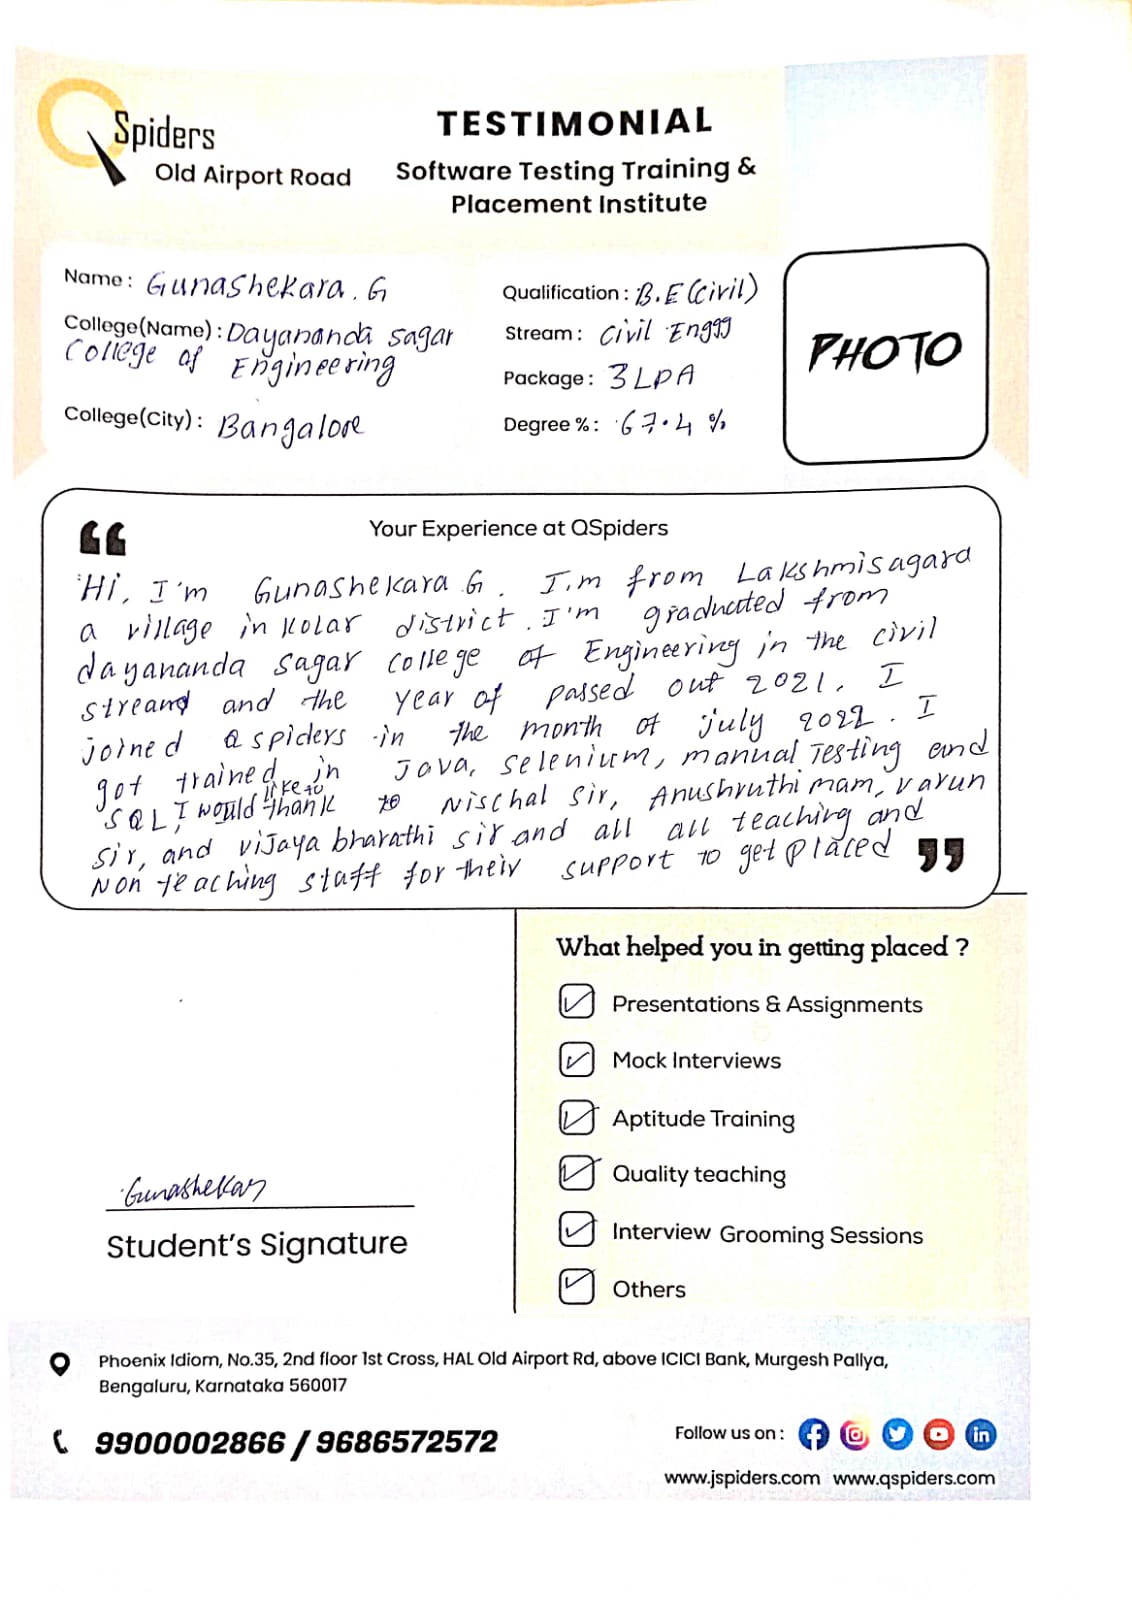 QSpiders
Old Airport Road
TESTIMONIAL
Software Testing Training &
Placement Institute
Name : Gunashekara. G
College(Name) : Dayananda Sagar
College of Engineering
College(City) : Bangalore
Qualification : B.E (Civil)
Stream : Civil Engg
Package : 3 LPA
Degree % : 67.4 %
PHOTO
Your Experience at QSpiders
“
Hi, I'm Gunashekara G. I.m from Lakshmisagara
a village in Kolar district. I'm graduated from
dayananda Sagar College of Engineering in the civil
stream and the year of passed out 2021. I
joined Qspiders in the month of july 2022. I
got trained in Java, Selenium, manual Testing and
SQL, I would like to thank to Nischal Sir, Anushruthi mam, varun
Sir, and vijaya bharathi sir and all all teaching and
Non teaching staff for their support to get placed
”
What helped you in getting placed ?
Presentations & Assignments
Mock Interviews
Aptitude Training
Quality teaching
Interview Grooming Sessions
Others
Gunashekar
Student's Signature
Phoenix Idiom, No.35, 2nd floor 1st Cross, HAL Old Airport Rd, above ICICI Bank, Murgesh Pallya,
Bengaluru, Karnataka 560017
9900002866 / 9686572572
Follow us on :
www.jspiders.com www.qspiders.com